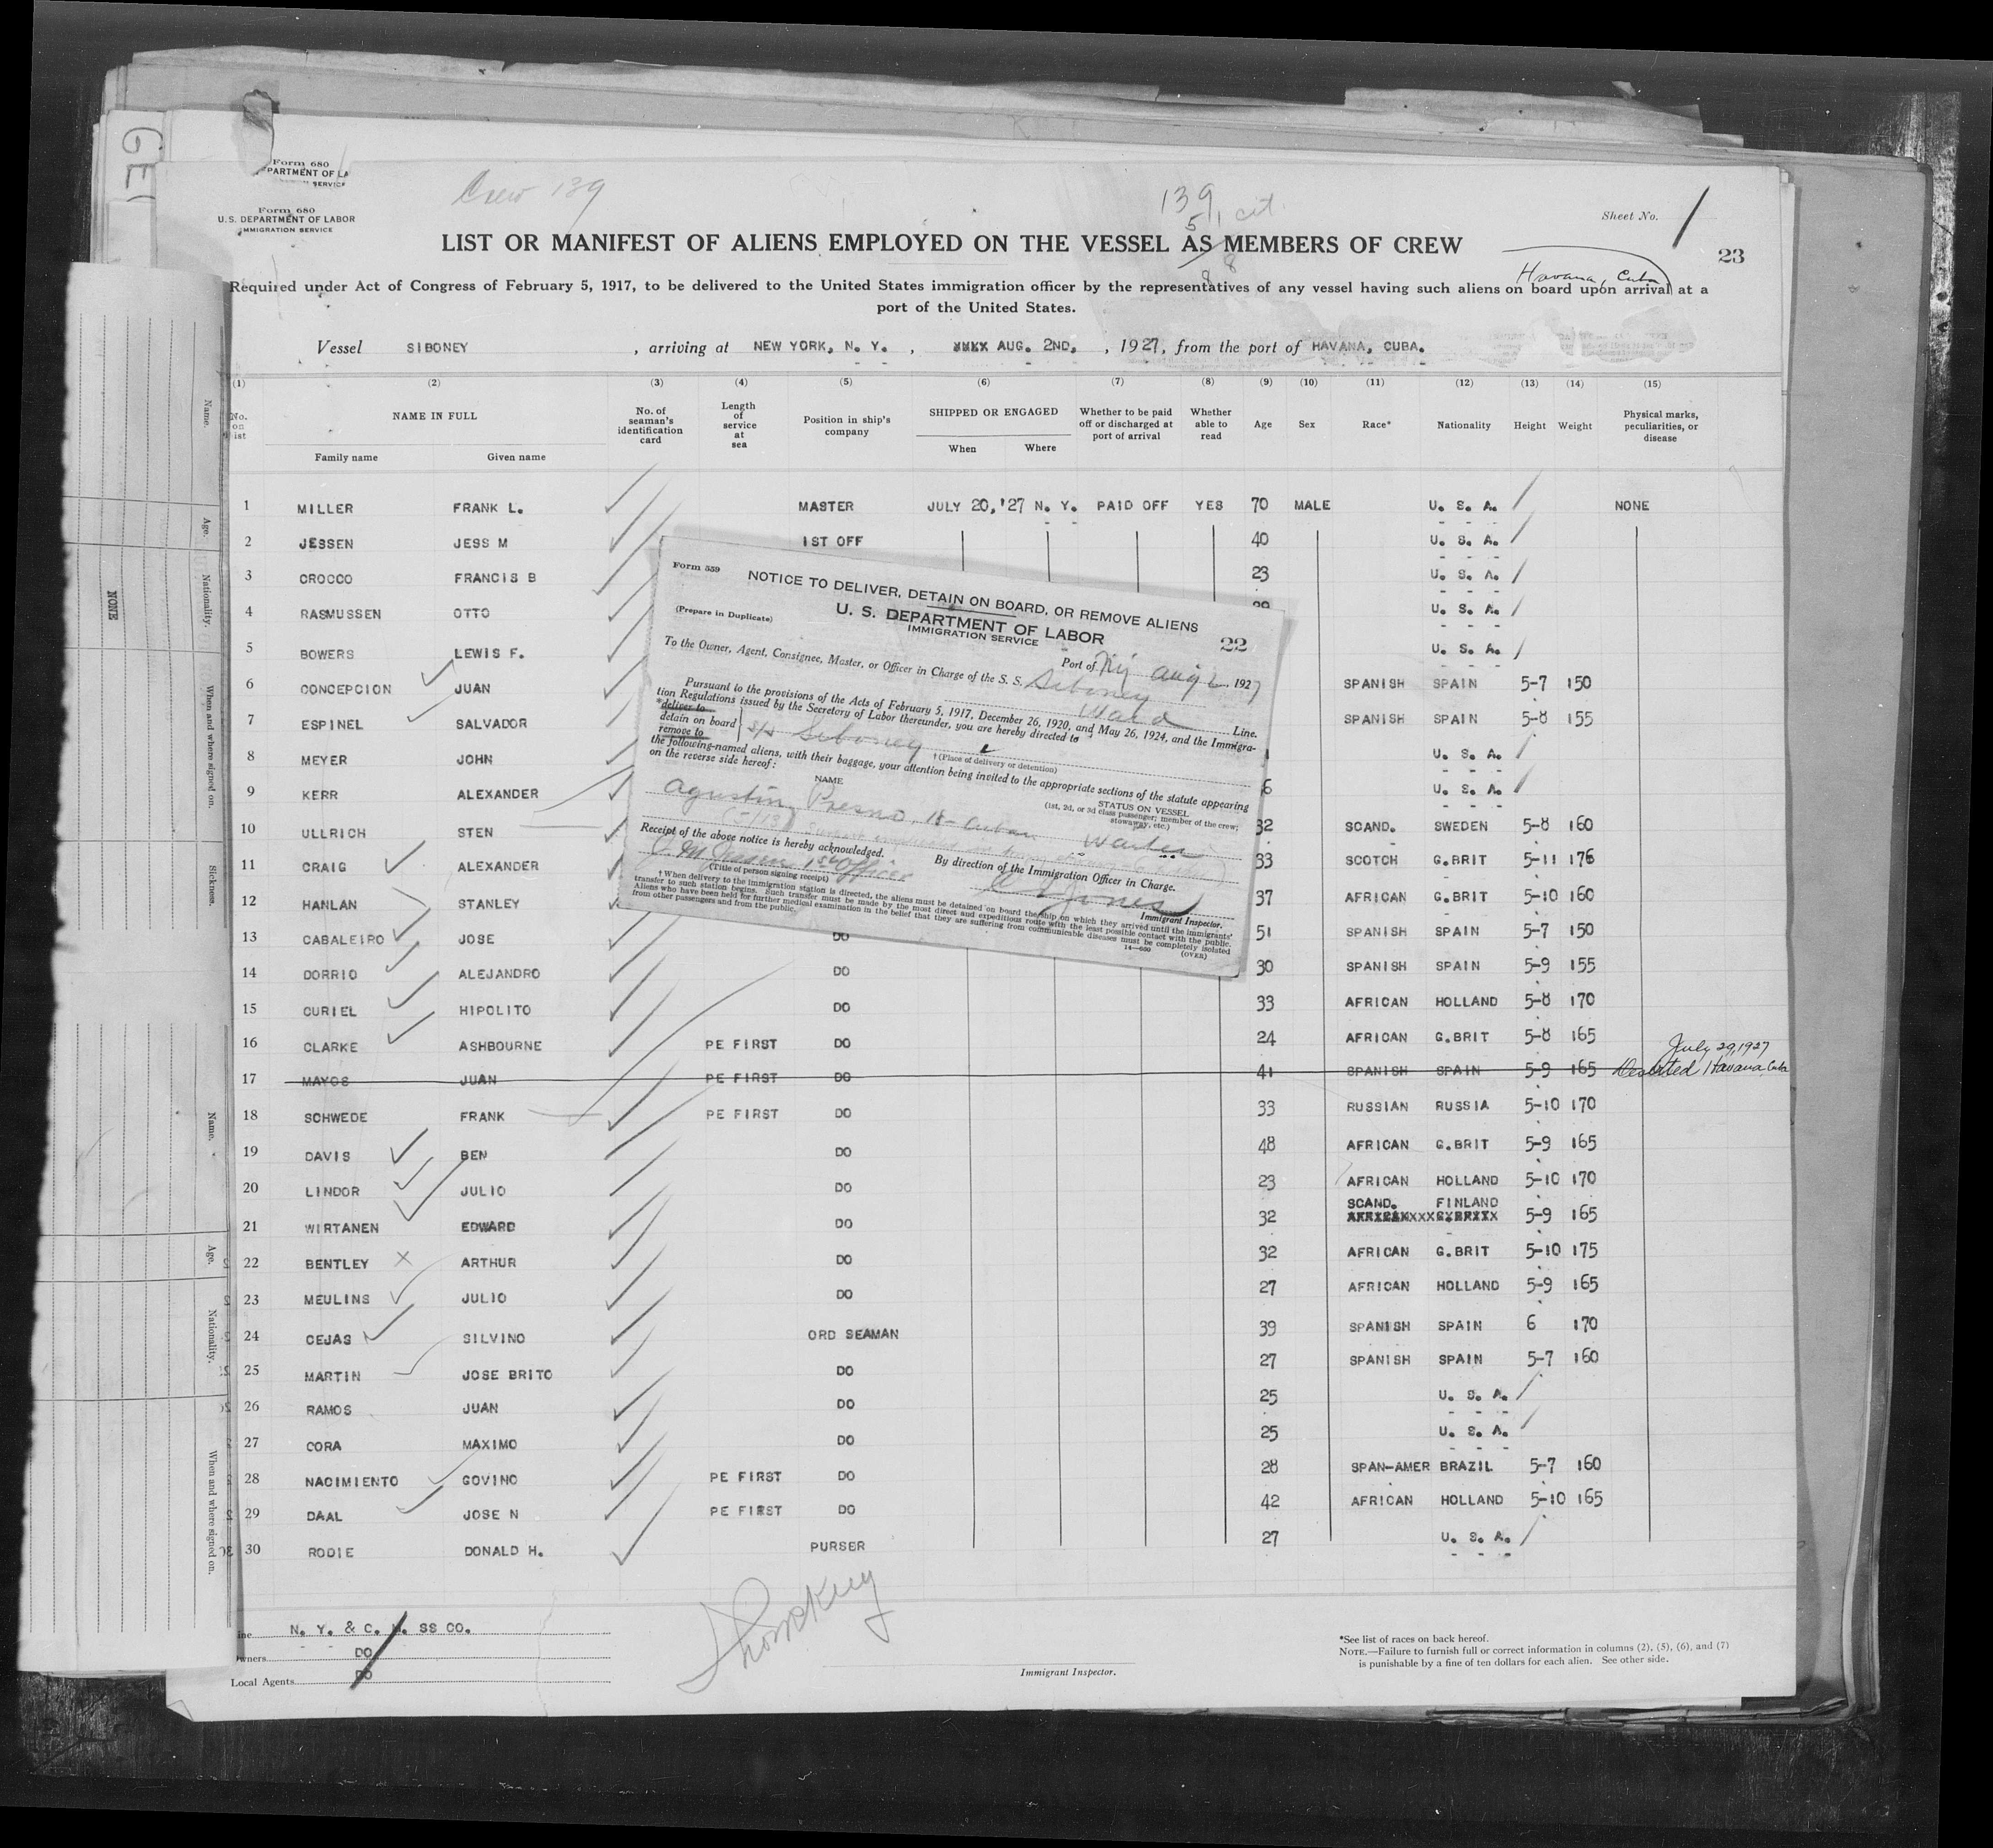 GE
Form 680
PARTMENT OF LA
SERVICE
Crew 139
139
51 cit.
88
Form 680
U.S. DEPARTMENT OF LABOR
IMMIGRATION SERVICE
Sheet No. 1
LIST OR MANIFEST OF ALIENS EMPLOYED ON THE VESSEL AS MEMBERS OF CREW
23
Havana, Cuba
Required under Act of Congress of February 5, 1917, to be delivered to the United States immigration officer by the representatives of any vessel having such aliens on board upon arrival at a
port of the United States.
Vessel SIBONEY, arriving at NEW YORK, N. Y., XXXX AUG. 2ND, , 1927, from the port of HAVANA, CUBA.
(1) (2) (3) (4) (5) (6) (7) (8) (9) (10) (11) (12) (13) (14) (15)
No. on list NAME IN FULL Family name Given name No. of seaman's identification card Length of service at sea Position in ship's company SHIPPED OR ENGAGED When Where Whether to be paid off or discharged at port of arrival Whether able to read Age Sex Race* Nationality Height Weight Physical marks, peculiarities, or disease
1 MILLER FRANK L. MASTER JULY 20,'27 N. Y. PAID OFF YES 70 MALE U. S. A. NONE
2 JESSEN JESS M 1ST OFF 40 U. S. A.
3 CROCCO FRANCIS B 23 U. S. A.
4 RASMUSSEN OTTO U. S. A.
5 BOWERS LEWIS F. U. S. A.
6 CONCEPCION JUAN SPANISH SPAIN 5-7 150
7 ESPINEL SALVADOR SPANISH SPAIN 5-8 155
8 MEYER JOHN U. S. A.
9 KERR ALEXANDER 6 U. S. A.
10 ULLRICH STEN 32 SCAND. SWEDEN 5-8 160
11 CRAIG ALEXANDER 33 SCOTCH G.BRIT 5-11 176
12 HANLAN STANLEY 37 AFRICAN G.BRIT 5-10 160
13 CABALEIRO JOSE DO 51 SPANISH SPAIN 5-7 150
14 DORRIO ALEJANDRO DO 30 SPANISH SPAIN 5-9 155
15 CURIEL HIPOLITO DO 33 AFRICAN HOLLAND 5-8 170
16 CLARKE ASHBOURNE PE FIRST DO 24 AFRICAN G.BRIT 5-8 165
July 29, 1927
17 MAYOS JUAN PE FIRST DO 41 SPANISH SPAIN 5-9 165 Deserted Havana, Cuba
18 SCHWEDE FRANK PE FIRST DO 33 RUSSIAN RUSSIA 5-10 170
19 DAVIS BEN DO 48 AFRICAN G.BRIT 5-9 165
20 LINDOR JULIO DO 23 AFRICAN HOLLAND 5-10 170
SCAND. FINLAND
21 WIRTANEN EDWARD DO 32 5-9 165
22 BENTLEY X ARTHUR DO 32 AFRICAN G.BRIT 5-10 175
23 MEULINS JULIO DO 27 AFRICAN HOLLAND 5-9 165
24 CEJAS SILVINO ORD SEAMAN 39 SPANISH SPAIN 6 170
25 MARTIN JOSE BRITO DO 27 SPANISH SPAIN 5-7 160
26 RAMOS JUAN DO 25 U. S. A.
27 CORA MAXIMO DO 25 U. S. A.
28 NACIMIENTO GOVINO PE FIRST DO 28 SPAN-AMER BRAZIL 5-7 160
29 DAAL JOSE N PE FIRST DO 42 AFRICAN HOLLAND 5-10 165
30 RODIE DONALD H. PURSER 27 U. S. A.
Form 559
NOTICE TO DELIVER, DETAIN ON BOARD, OR REMOVE ALIENS
(Prepare in Duplicate)
U. S. DEPARTMENT OF LABOR
IMMIGRATION SERVICE
22
Port of NY Aug 2, 1927
To the Owner, Agent, Consignee, Master, or Officer in Charge of the S. S. Siboney
Ward Line.
Pursuant to the provisions of the Acts of February 5, 1917, December 26, 1920, and May 26, 1924, and the Immigra-
tion Regulations issued by the Secretary of Labor thereunder, you are hereby directed to
*deliver to
detain on board
remove to
s/s Siboney
†(Place of delivery or detention)
the following-named aliens, with their baggage, your attention being invited to the appropriate sections of the statute appearing
on the reverse side hereof:
NAME
STATUS ON VESSEL
(1st, 2d, or 3d class passenger; member of the crew;
stowaway, etc.)
Agustin Presno, 18 - Cuban Waiter
Receipt of the above notice is hereby acknowledged.
J. M. Jessen 1st Officer
(Title of person signing receipt)
By direction of the Immigration Officer in Charge.
Jones
Immigrant Inspector.
† When delivery to the immigration station is directed, the aliens must be detained on board the ship on which they arrived until the immigrants'
transfer to such station begins. Such transfer must be made by the most direct and expeditious route with the least possible contact with the public.
Aliens who have been held for further medical examination in the belief that they are suffering from communicable diseases must be completely isolated
from other passengers and from the public.
14—660 (OVER)
Name.
Age.
Nationality.
NONE
When and where signed on.
Sickness.
Name.
Age.
Nationality.
When and where signed on.
ine N. Y. & C. M. SS CO.
wners DO
Local Agents DO
Immigrant Inspector.
*See list of races on back hereof.
NOTE.—Failure to furnish full or correct information in columns (2), (5), (6), and (7)
is punishable by a fine of ten dollars for each alien. See other side.